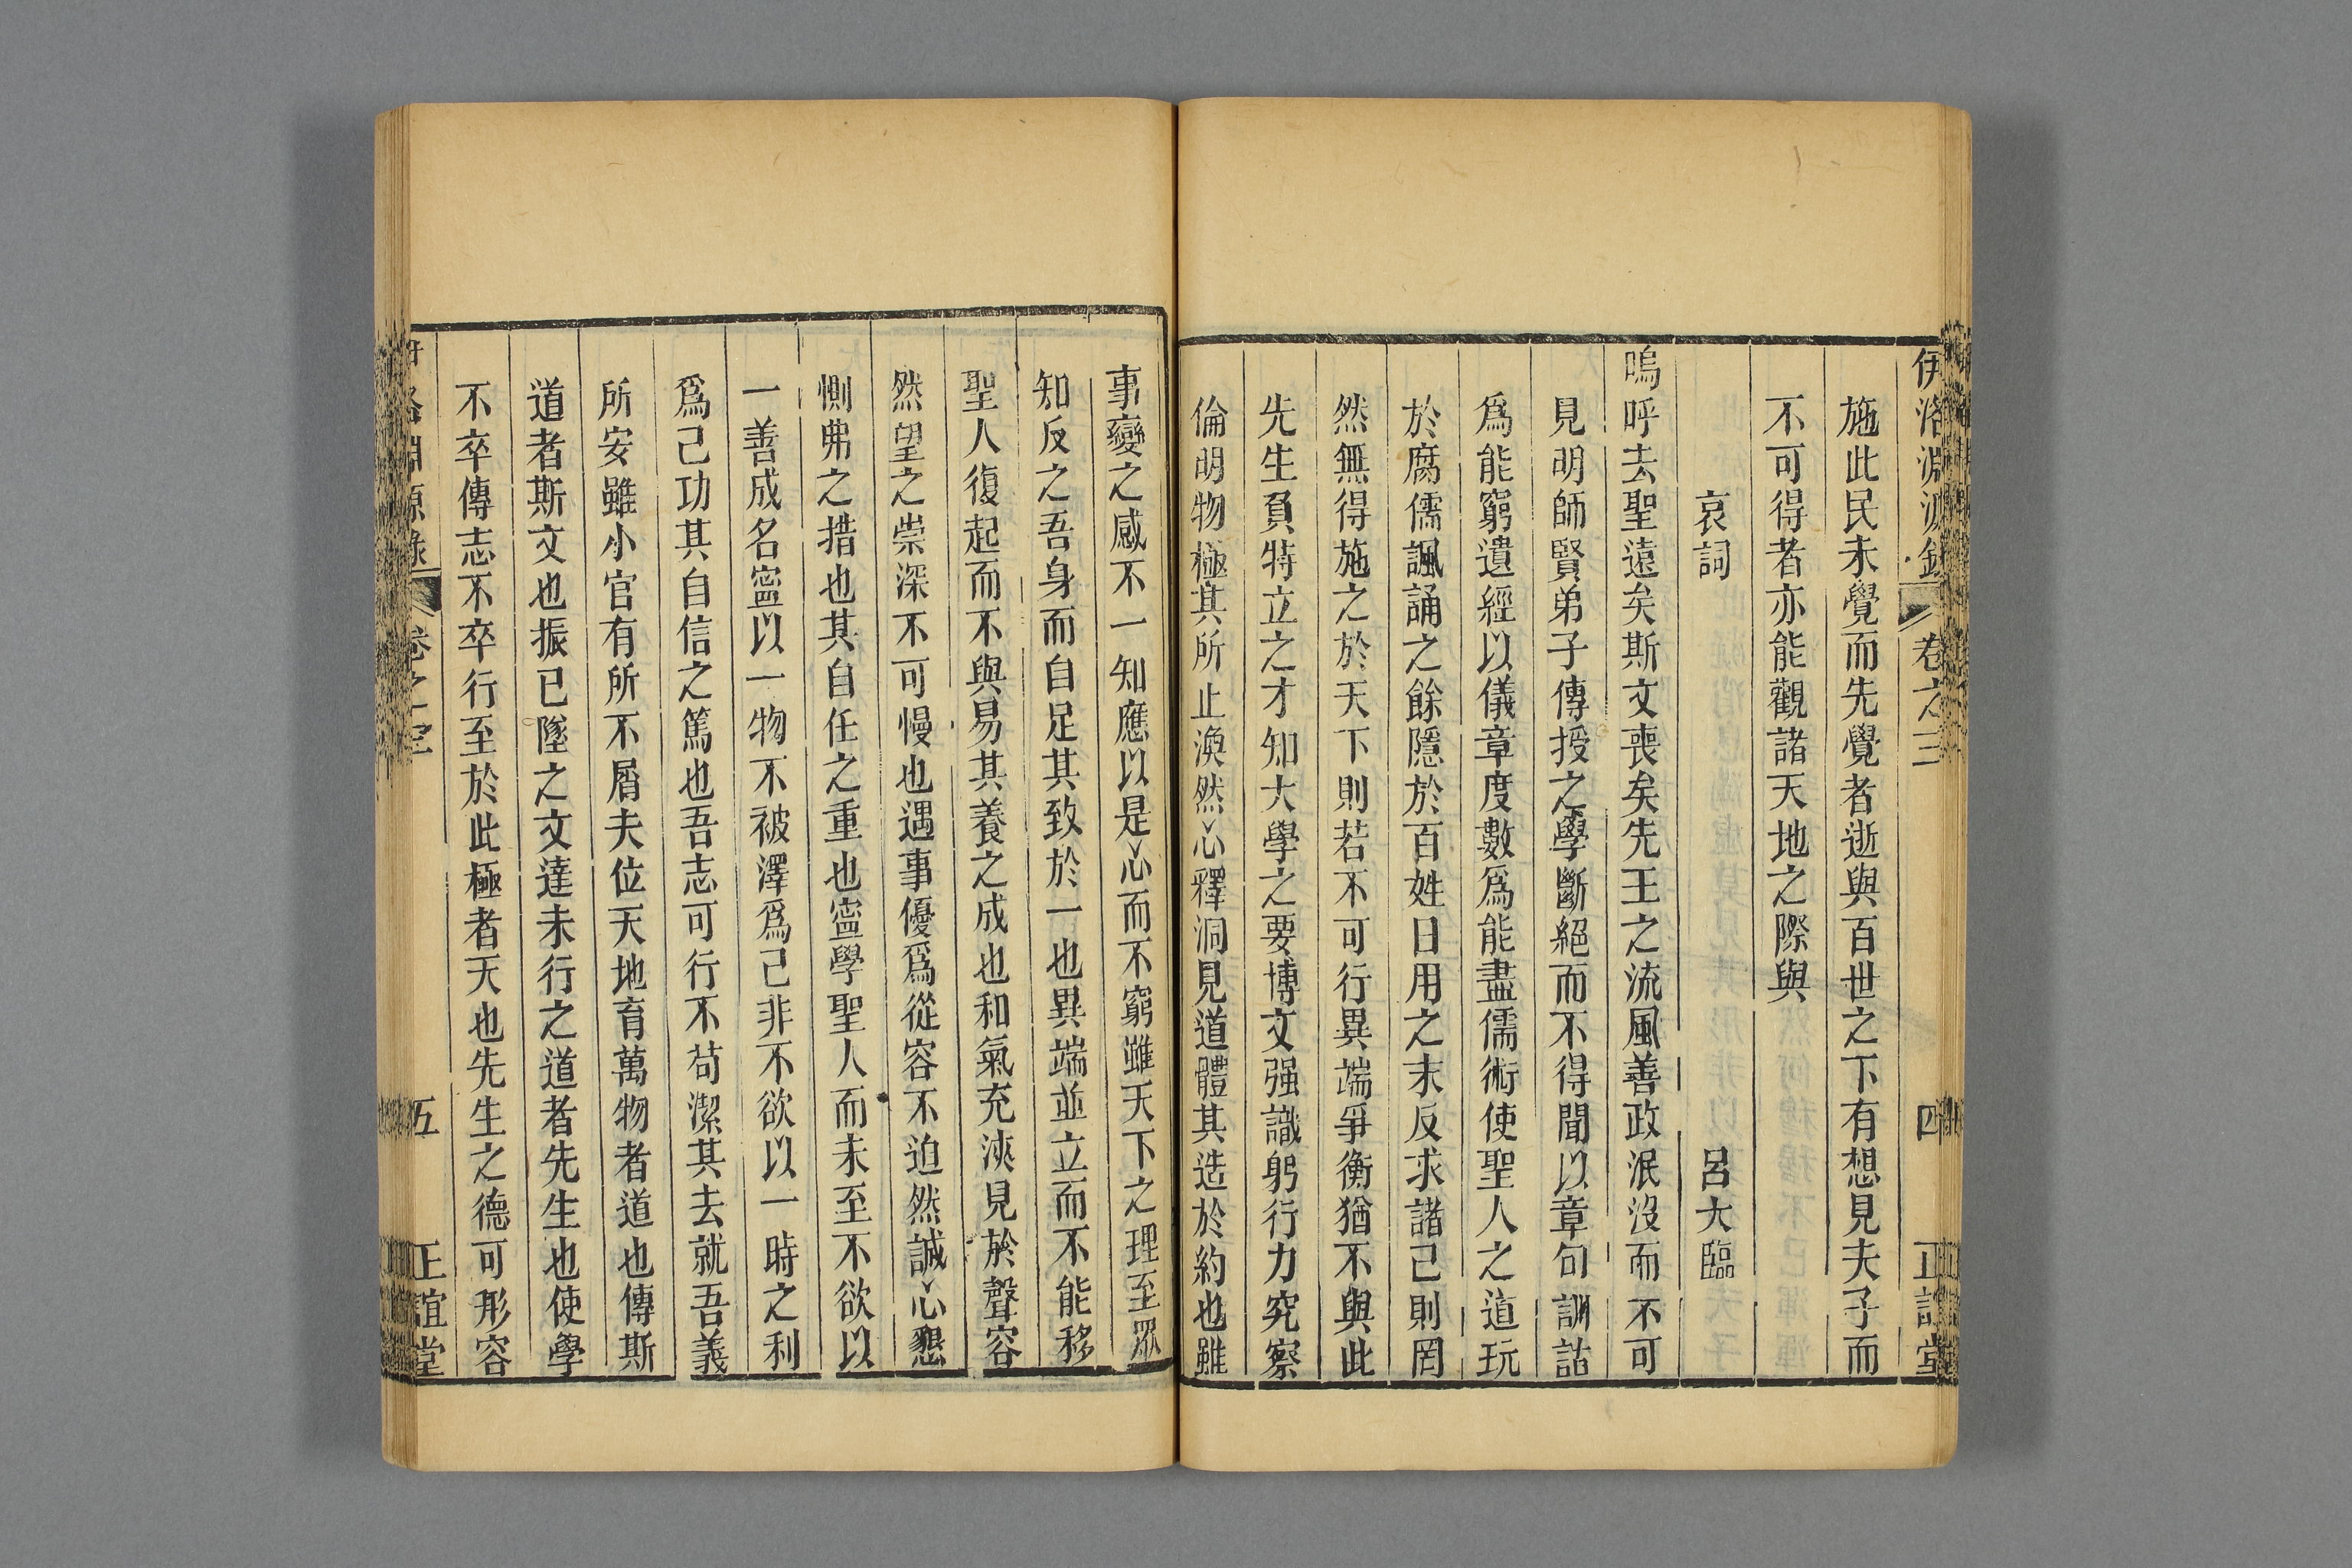 伊洛淵源錄 卷之三 四 正誼堂
施此民未覺而先覺者逝與百世之下有想見夫子而
不可得者亦能觀諸天地之際與
哀詞 呂大臨
嗚呼去聖遠矣斯文喪矣先王之流風善政泯沒而不可
見明師賢弟子傳授之學斷絕而不得聞以章句訓詁
爲能窮遺經以儀章度數爲能盡儒術使聖人之道玩
於腐儒諷誦之餘隱於百姓日用之末反求諸己則罔
然無得施之於天下則若不可行異端爭衡猶不與此
先生負特立之才知大學之要博文强識躬行力究察
倫明物極其所止渙然心釋洞見道體其造於約也雖
事變之感不一知應以是心而不窮雖天下之理至眾
知反之吾身而自足其致於一也異端並立而不能移
聖人復起而不與易其養之成也和氣充浹見於聲容
然望之崇深不可慢也遇事優爲從容不迫然誠心懇
惻弗之措也其自任之重也寧學聖人而未至不欲以
一善成名寧以一物不被澤爲己非不欲以一時之利
爲己功其自信之篤也吾志可行不苟潔其去就吾義
所安雖小官有所不屑夫位天地育萬物者道也傳斯
道者斯文也振已墜之文達未行之道者先生也使學
不卒傳志不卒行至於此極者天也先生之德可形容
洛淵源錄 卷之三 五 正誼堂